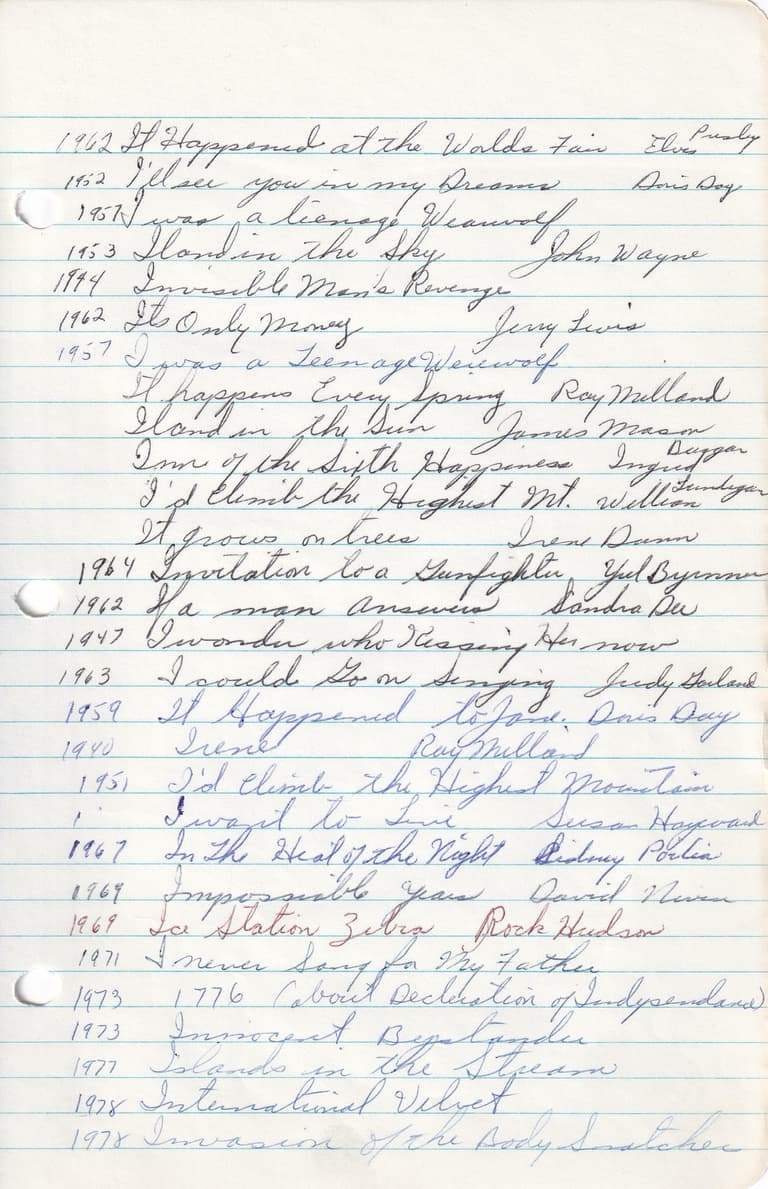 1962 It Happened at the Worlds Fair Elvis Presley
1952 I'll see you in my Dreams Doris Day
1957 I was a teenage Wearwolf
1953 Iland in the Sky John Wayne
1944 Invisible Man's Revenge
1962 Its Only Money Jerry Lewis
1957 I was a Teenage Werewolf
It happens Every Spring Ray Milland
Iland in the Sun James Mason
Inn of the Sixth Happiness Ingrid Buggar
I'd Climb the Highest Mt. William Lundigan
It grows on trees Irene Dunn
1964 Invitation to a Gunfighter Yul Brynner
1962 If a man Answers Sandra Dee
1947 I wonder who Kissing Her now
1963 I could Go on Singing Judy Garland
1959 It Happened to Jane. Doris Day
1940 Irene Ray Milland
1951 I'd Climb the Highest Mountain
I want to Live Susan Hayward
1967 In The Heat of the Night Sidney Poitia
1969 Impossible Years David Niven
1969 Ice Station Zebra Rock Hudson
1971 I never Sang for My Father
1973 1776 (about Decleration of Independance)
1973 Innocent Bystander
1977 Islands in the Stream
1978 International Velvet
1978 Invasion of the Body Snatcher